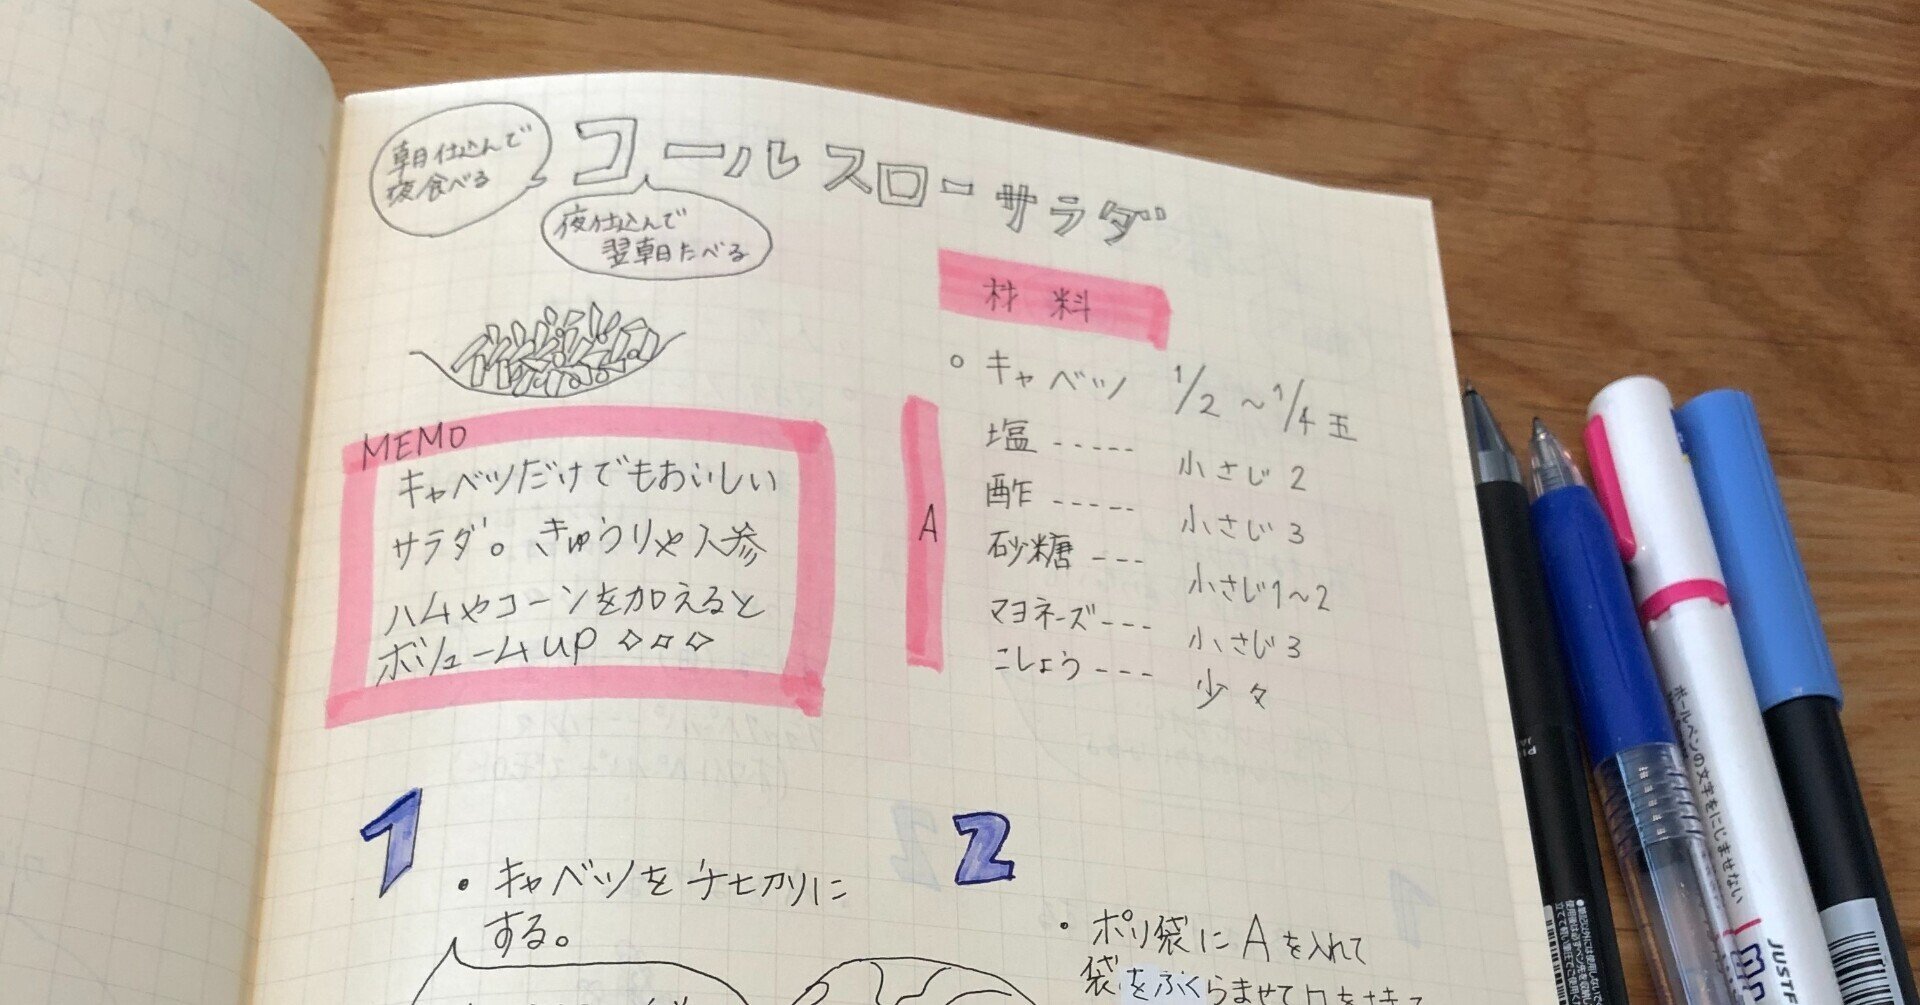 朝仕込んで
夜食べる
コールスローサラダ
夜仕込んで
翌朝たべる
材料
キャベツ 1/2〜1/4玉
A
塩 ----- 小さじ 2
酢 ----- 小さじ 3
砂糖 --- 小さじ1〜2
マヨネーズ--- 小さじ3
こしょう--- 少々
MEMO
キャベツだけでもおいしい
サラダ。きゅうりや人参
ハムやコーンを加えると
ボリュームup ◇◇◇
1
・キャベツを千切りに
する。
2
・ポリ袋にAを入れて
袋をふくらませて口を
ボールペンの文字をにじませない
JUSTF